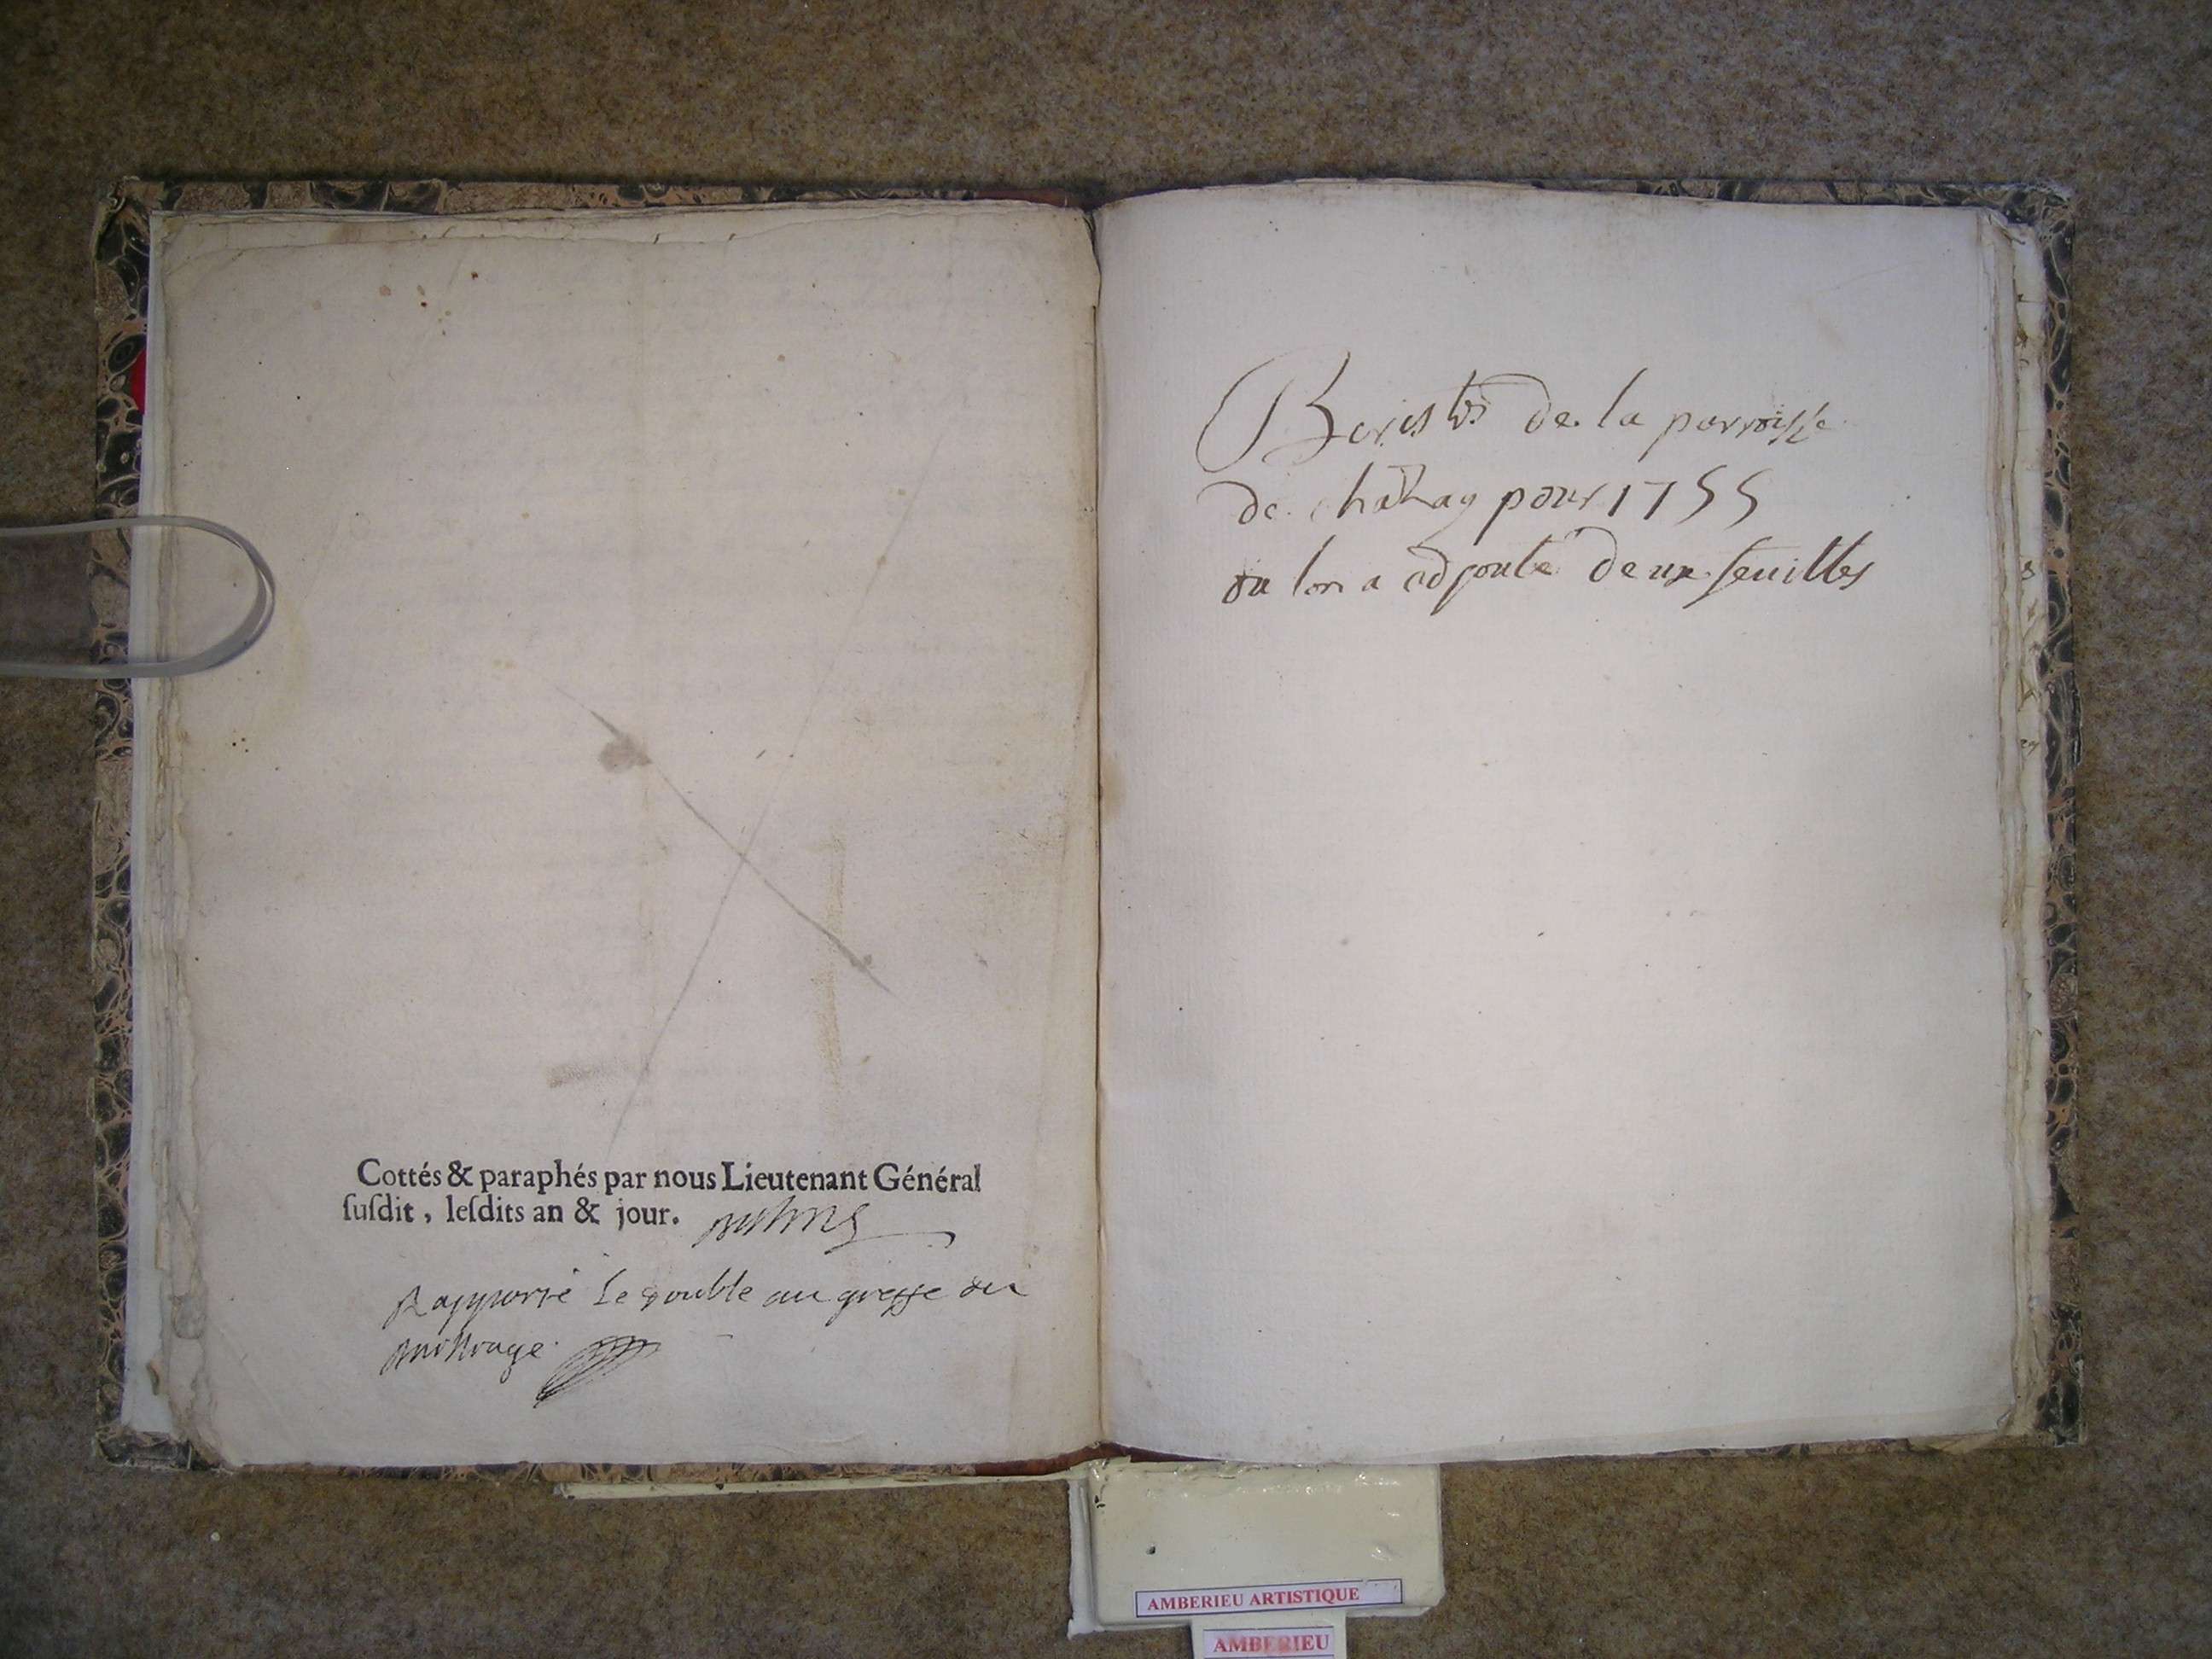 Cottés & paraphés par nous Lieutenant Général
ſuſdit, leſdits an & jour.
Rapporté Le double au greffe du
de la parroisse
de pour 1755
ou lon a adjouté deux feuilles
AMBERIEU ARTISTIQUE
AMBERIEU